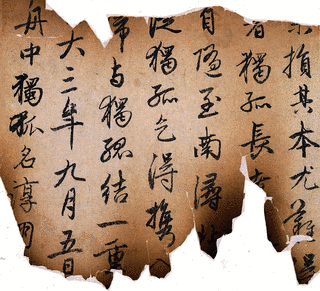 損其本尤難得
者獨孤長
自隨至南潯
從獨孤乞得攜入
帰与獨孤結一重
大三年九月五日
舟中獨孤名淳朋